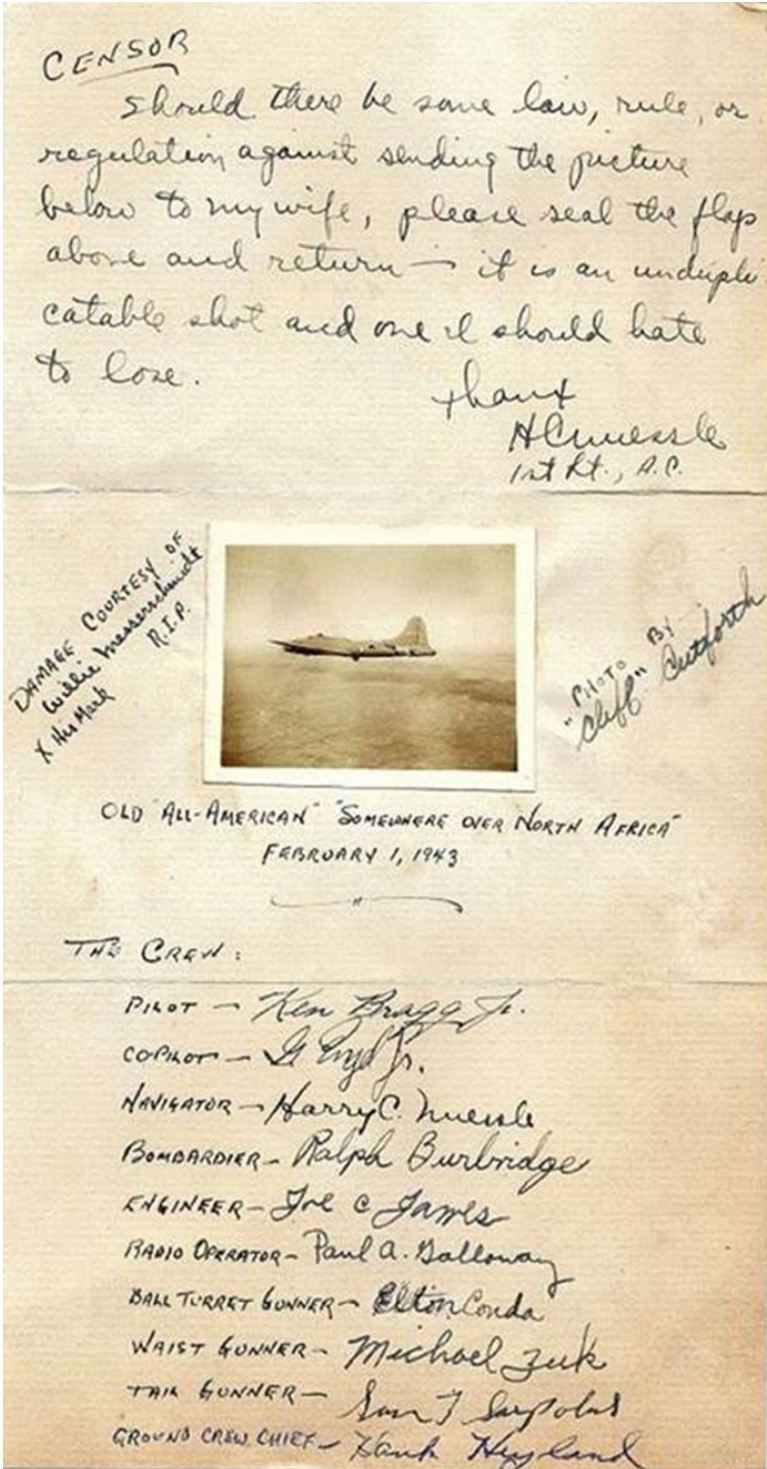 CENSOR
Should there be some law, rule, or
regulation against sending the picture
below to my wife, please seal the flap
above and return — it is an undupli
catable shot and one I should hate
to lose.
Thanx
HCNuessle
1st Lt., A.C.
DAMAGE COURTESY OF
Willie Messerschmidt
R.I.P.
X His Mark
"PHOTO BY
"Cliff" Cutforth
OLD "ALL-AMERICAN" "SOMEWHERE OVER NORTH AFRICA"
FEBRUARY 1, 1943
THE CREW:
PILOT — Ken Bragg Jr.
COPILOT — G Jr.
NAVIGATOR — Harry C. Nuessle
BOMBARDIER — Ralph Burbridge
ENGINEER — Joe C James
RADIO OPERATOR — Paul A. Galloway
BALL TURRET GUNNER — Elton Conda
WAIST GUNNER — Michael Zuk
TAIL GUNNER — Sam T Sarpolus
GROUND CREW CHIEF — Hank Hyland